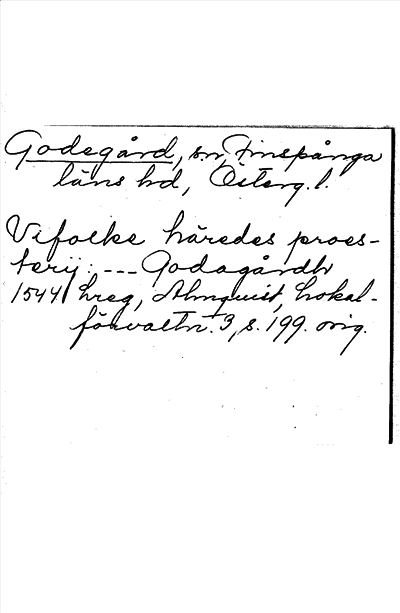 Godegård, sn, Finspånga
läns hd, Österg. l.
Vifolke häredes proes-
terij: --- Godagårdh
1544 hreg, Almquist, Lokal-
förvaltn. 3, s. 199. orig.